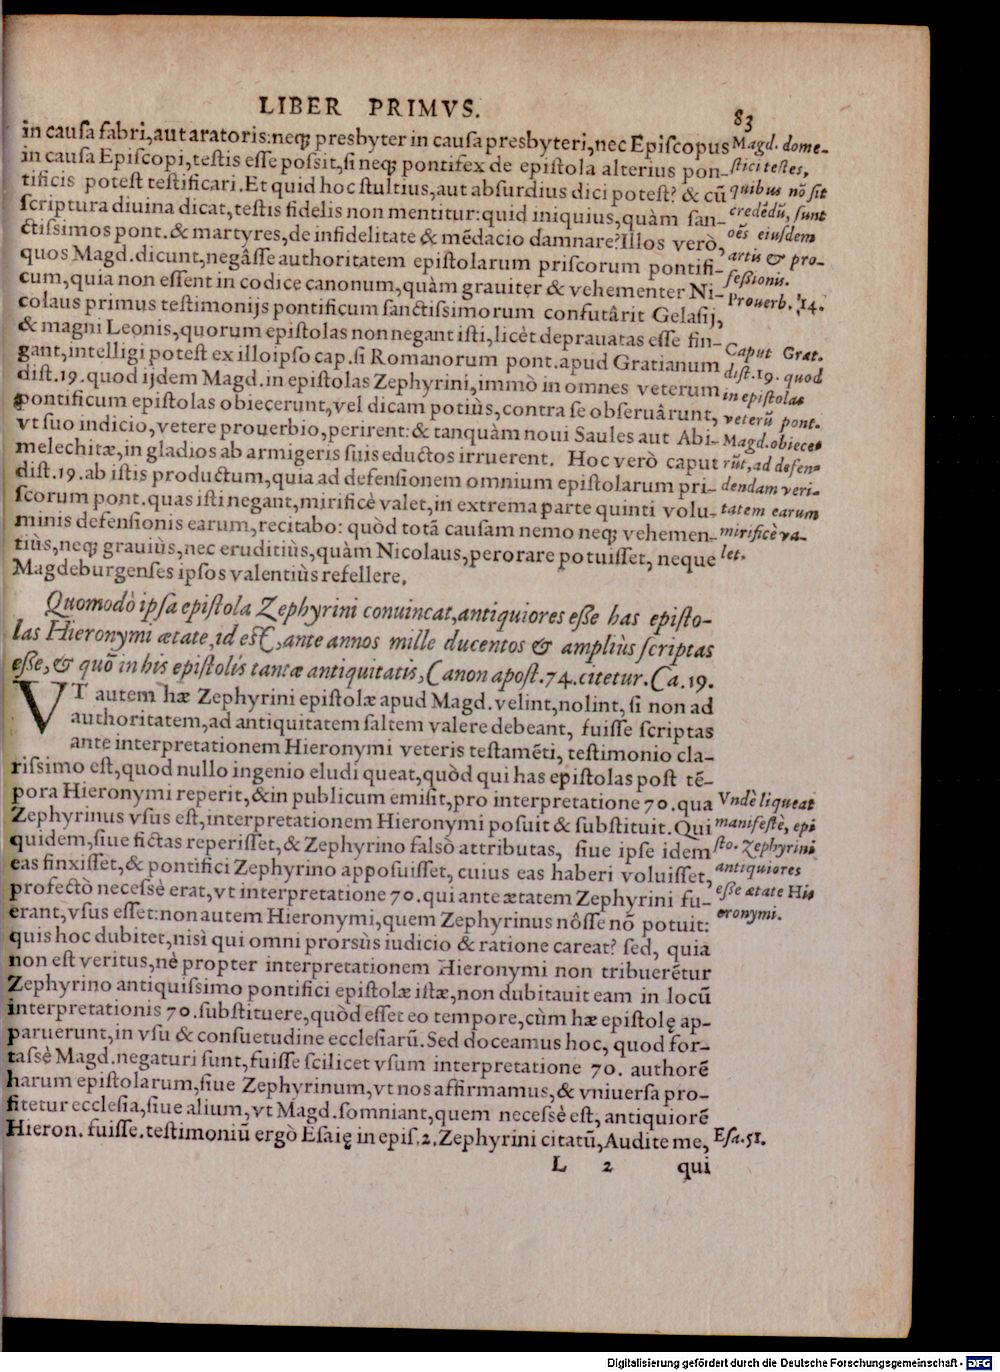 LIBER PRIMVS. 83
in cauſa fabri,aut aratoris:neq; presbyter in cauſa presbyteri,nec Epiſcopus
in cauſa Epiſcopi,teſtis eſſe poſsit,ſi neq; pontifex de epiſtola alterius pon-
tificis poteſt teſtificari.Et quid hoc ſtultius,aut abſurdius dici poteſt? & cũ
ſcriptura diuina dicat,teſtis fidelis non mentitur:quid iniquius,quàm ſan-
ctiſsimos pont.& martyres,de infidelitate & mẽdacio damnare?Illos verò,
quos Magd.dicunt,negâſſe authoritatem epiſtolarum priſcorum pontifi-
cum,quia non eſſent in codice canonum,quàm grauiter & vehementer Ni-
colaus primus teſtimonijs pontificum ſanctiſsimorum confutârit Gelaſij,
& magni Leonis,quorum epiſtolas non negant iſti,licèt deprauatas eſſe fin-
gant,intelligi poteſt ex illo ipſo cap.ſi Romanorum pont.apud Gratianum
diſt.19.quod ijdem Magd.in epiſtolas Zephyrini,immò in omnes veterum
pontificum epiſtolas obiecerunt,vel dicam potiùs,contra ſe obſeruârunt,
vt ſuo indicio,vetere prouerbio,perirent:& tanquàm noui Saules aut Abi-
melechitæ,in gladios ab armigeris ſuis eductos irruerent. Hoc verò caput
diſt.19.ab iſtis productum,quia ad defenſionem omnium epiſtolarum pri-
ſcorum pont.quas iſti negant,mirificè valet,in extrema parte quinti volu-
minis defenſionis earum,recitabo: quòd totã cauſam nemo neq; vehemen-
tiùs,neq; grauiùs,nec eruditiùs,quàm Nicolaus,perorare potuiſſet, neque
Magdeburgenſes ipſos valentiùs refellere.
Magd. dome-
ſtici teſtes,
quibus nõ ſit
credẽdũ, ſunt
oẽs eiuſdem
artis & pro-
feſsionis.
Prouerb. 14.
Caput Grat.
diſt.19. quod
in epiſtolas
veterũ pont.
Magd.obiece-
rũt,ad defen-
dendam veri-
tatem earum
mirificè va-
let.
Quomodò ipſa epiſtola Zephyrini conuincat,antiquiores eſſe has epiſto-
las Hieronymi ætate,id eſt,ante annos mille ducentos & ampliùs ſcriptas
eſſe, & quõ in his epiſtolis tantæ antiquitatis, Canon apoſt.74.citetur. Ca.19.
VT autem hæ Zephyrini epiſtolæ apud Magd.velint,nolint, ſi non ad
authoritatem,ad antiquitatem ſaltem valere debeant, fuiſſe ſcriptas
ante interpretationem Hieronymi veteris teſtamẽti, teſtimonio cla-
riſsimo eſt,quod nullo ingenio eludi queat,quòd qui has epiſtolas poſt tẽ-
pora Hieronymi reperit,& in publicum emiſit,pro interpretatione 70.qua
Zephyrinus vſus eſt,interpretationem Hieronymi poſuit & ſubſtituit. Qui
quidem,ſiue fictas reperiſſet,& Zephyrino falsò attributas, ſiue ipſe idem
eas finxiſſet,& pontifici Zephyrino appoſuiſſet, cuius eas haberi voluiſſet,
profectò neceſsè erat,vt interpretatione 70.qui ante ætatem Zephyrini fu-
erant,vſus eſſet:non autem Hieronymi,quem Zephyrinus nôſſe nõ potuit:
quis hoc dubitet,nisì qui omni prorsùs iudicio & ratione careat? ſed, quia
non eſt veritus,nè propter interpretationem Hieronymi non tribuerẽtur
Zephyrino antiquiſsimo pontifici epiſtolæ iſtæ,non dubitauit eam in locũ
interpretationis 70.ſubſtituere,quòd eſſet eo tempore,cùm hæ epiſtolę ap-
paruerunt,in vſu & conſuetudine eccleſiarũ.Sed doceamus hoc, quod for-
taſsè Magd.negaturi ſunt,fuiſſe ſcilicet vſum interpretatione 70. authorẽ
harum epiſtolarum,ſiue Zephyrinum,vt nos affirmamus,& vniuerſa pro-
fitetur eccleſia,ſiue alium,vt Magd.ſomniant,quem neceſsè eſt, antiquiorẽ
Hieron. fuiſſe.teſtimoniũ ergò Eſaię in epiſ.2.Zephyrini citatũ,Audite me,
Vndè liqueat
manifeſtè, epi
ſto. Zephyrini
antiquiores
eſſe ætate Hie
eronymi.
Eſa.51.
L 2 qui
Digitalisierung gefördert durch die Deutsche Forschungsgemeinschaft - DFG